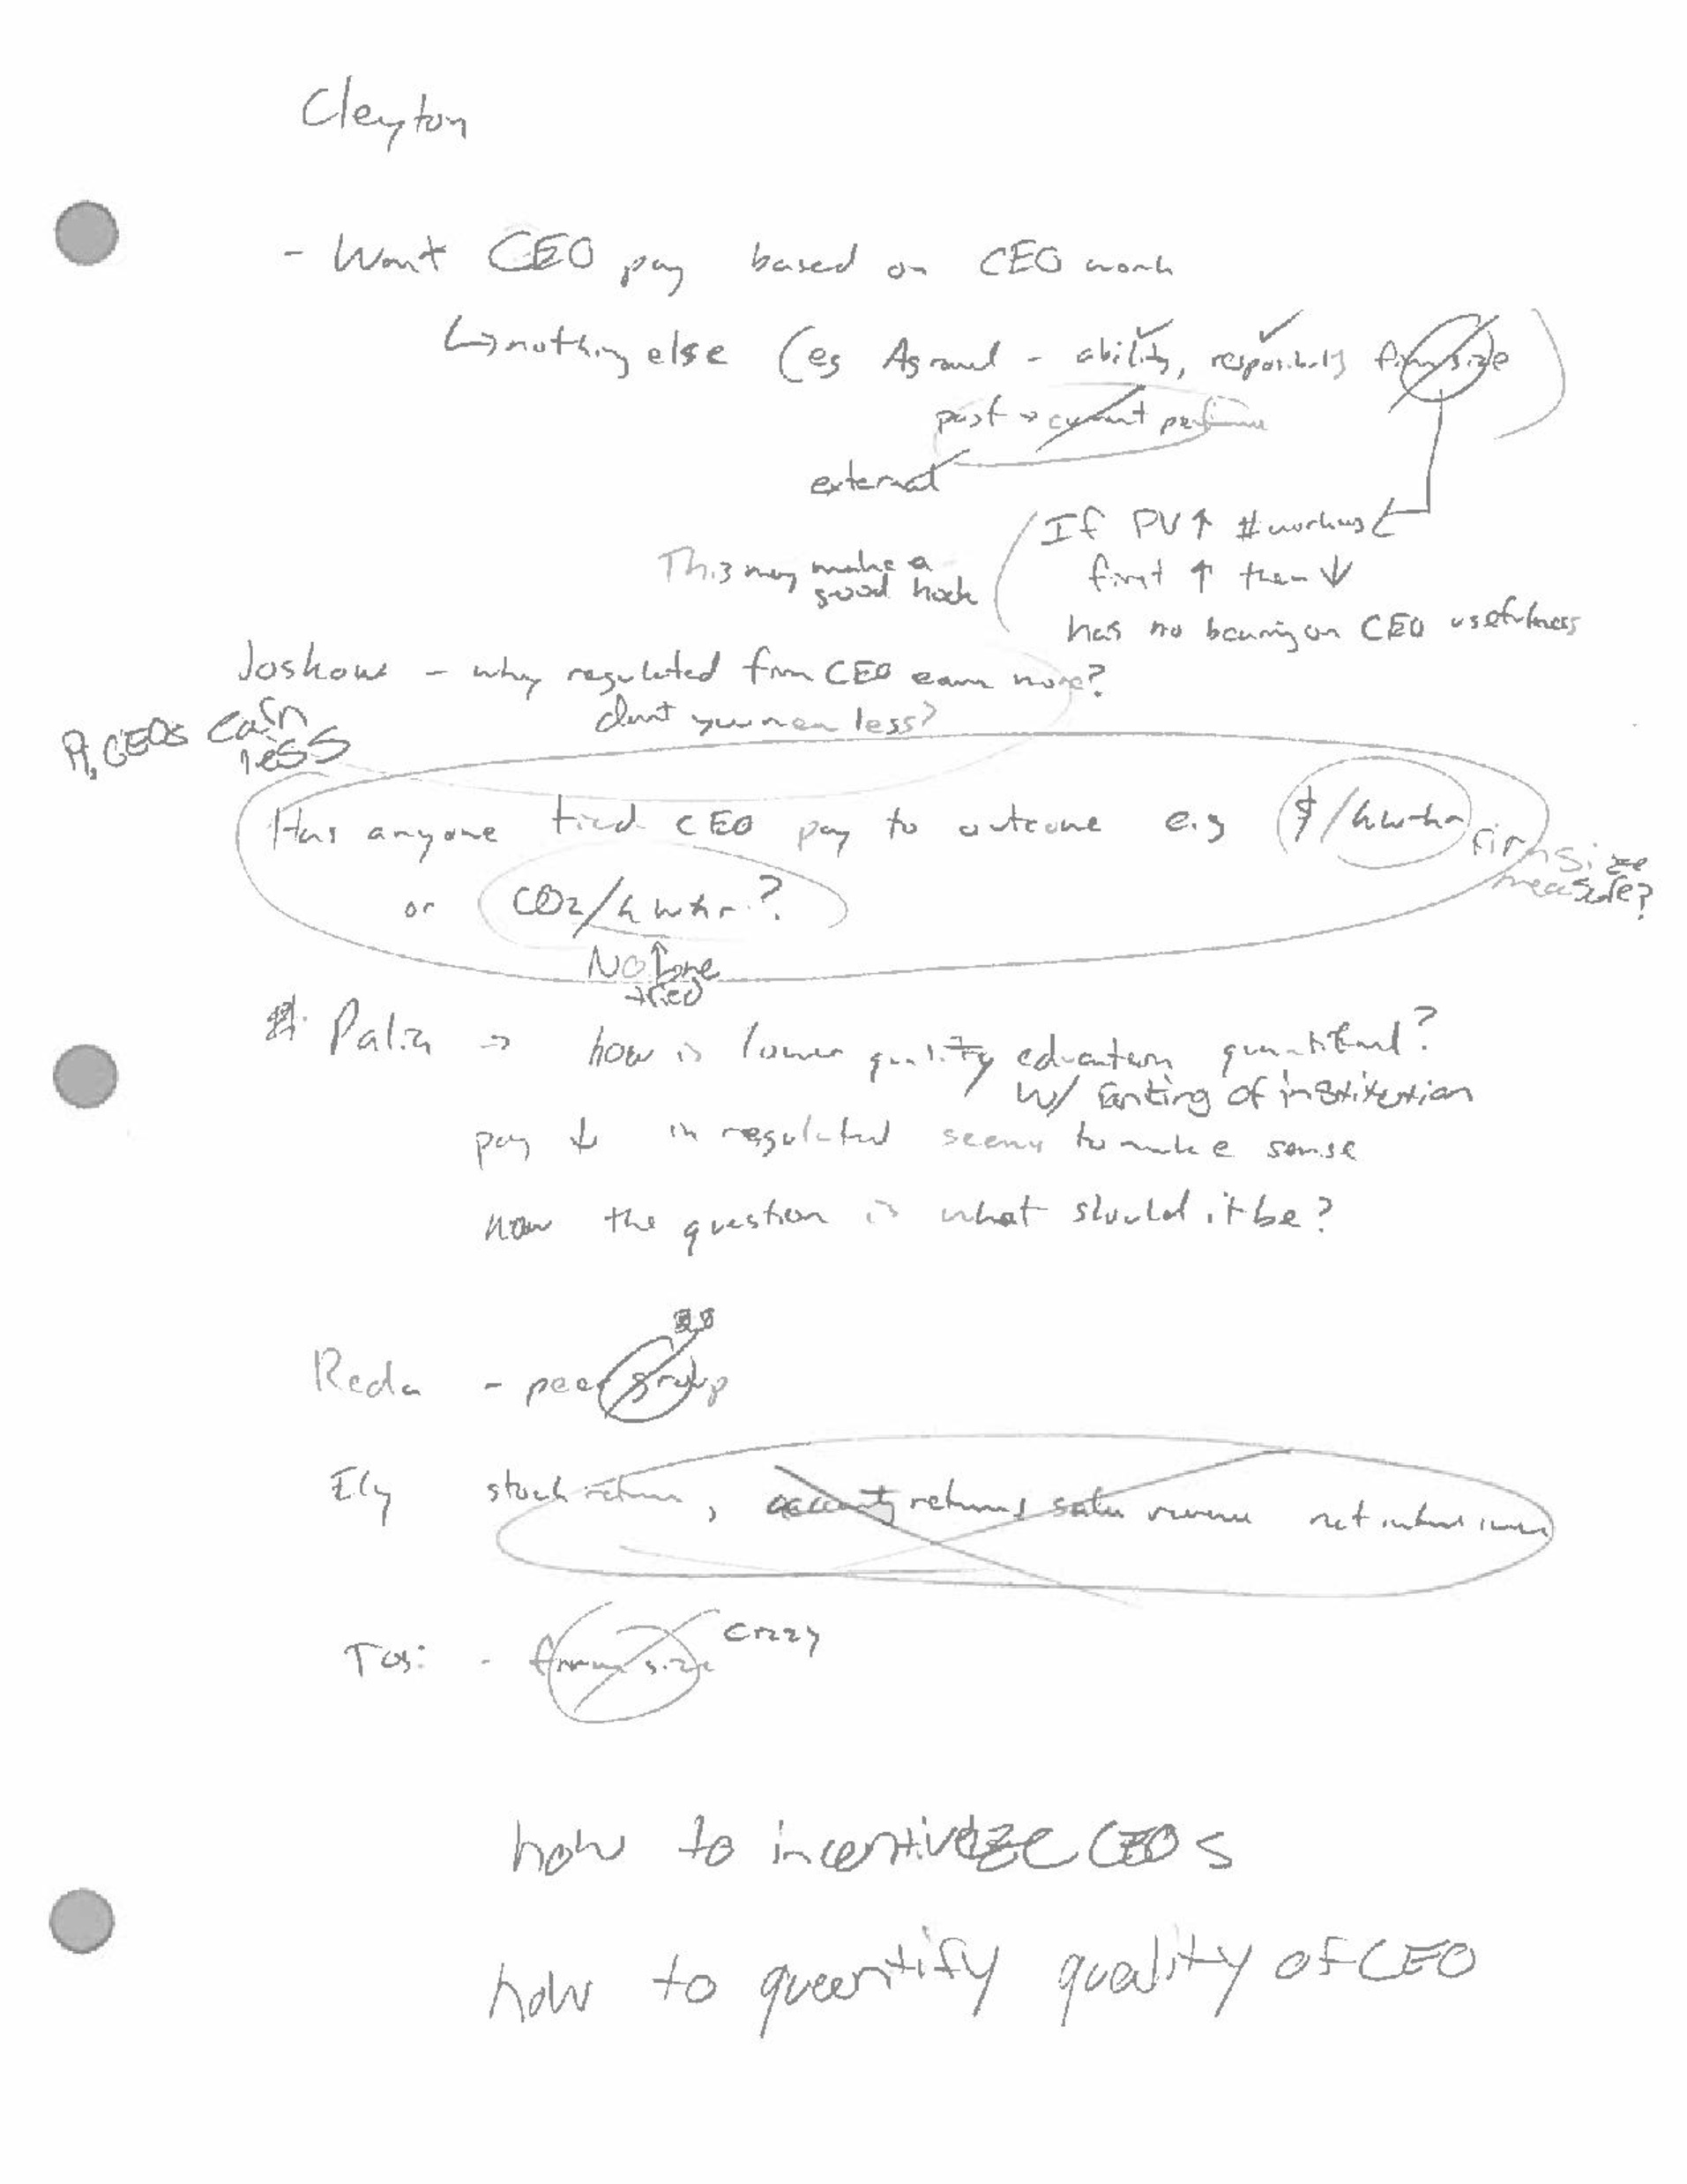 Cleyton
- Want CEO pay based on CEO work
↳ nothing else (eg Agrawal - ability, responsibility firm size)
past → current performance
external
If PV ↑ # workers
first ↑ then ↓
This may make a
good hook
has no bearing on CEO usefulness
Joskow - why regulated firm CEO earn more?
dont you mean less?
CEOs earn
less
Has anyone tied CEO pay to outcome e.g $/kwhr
firm size
measure?
or CO2/kwhr?
No one
tried
Palia → how is lower quality education quantified?
w/ ranking of institution
pay ↓ in regulated seems to make sense
now the question is what should it be?
Reda - peer group
Ely stock return, accounting returns sales revenue net
Tosi - firm size crazy
how to incentivize CEOs
how to quantify quality of CEO